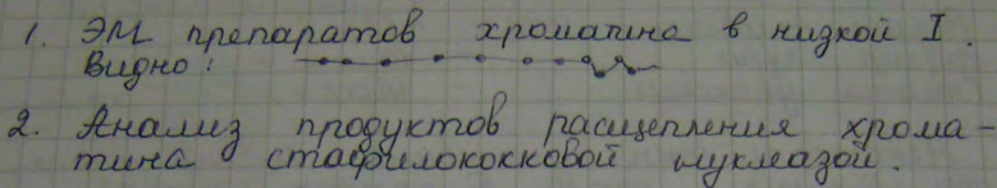 1. ЭМ препаратов хроматина в низкой I.
Видно:
2. Анализ продуктов расщепления хрома-
тина стафилококковой нуклеазой.